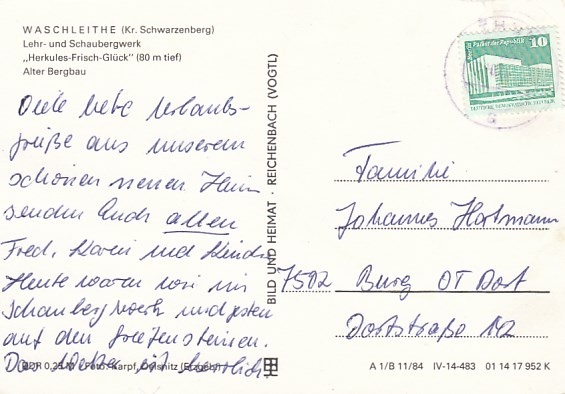 WASCHLEITHE (Kr. Schwarzenberg)
Lehr- und Schaubergwerk
„Herkules-Frisch-Glück" (80 m tief)
Alter Bergbau
Viele liebe Urlaubs-
grüße aus unserem
schönen neuen Heim
senden Euch allen
Fred, Karin und Kinder
Heute waren wir im
Schaubergwerk und gestern
auf den Greifensteinen.
Das Wetter ist herrlich.
DDR 0,25 M Foto: Karpf, Oelsnitz (Erzgeb.)
BILD UND HEIMAT · REICHENBACH (VOGTL)
Palast der Republik 10
DEUTSCHE DEMOKRATISCHE REPUBLIK
Familie
Johannes Hartmann
7502 Burg OT Dorf
Dorfstraße 142
A 1/B 11/84 IV-14-483 01 14 17 952 K